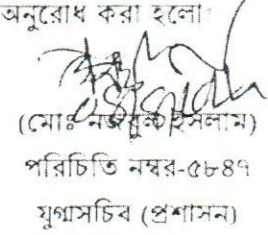 অনুরোধ করা হলো।
(মোঃ নজরুল ইসলাম)
পরিচিতি নম্বর-৫৮৪৭
যুগ্মসচিব (প্রশাসন)